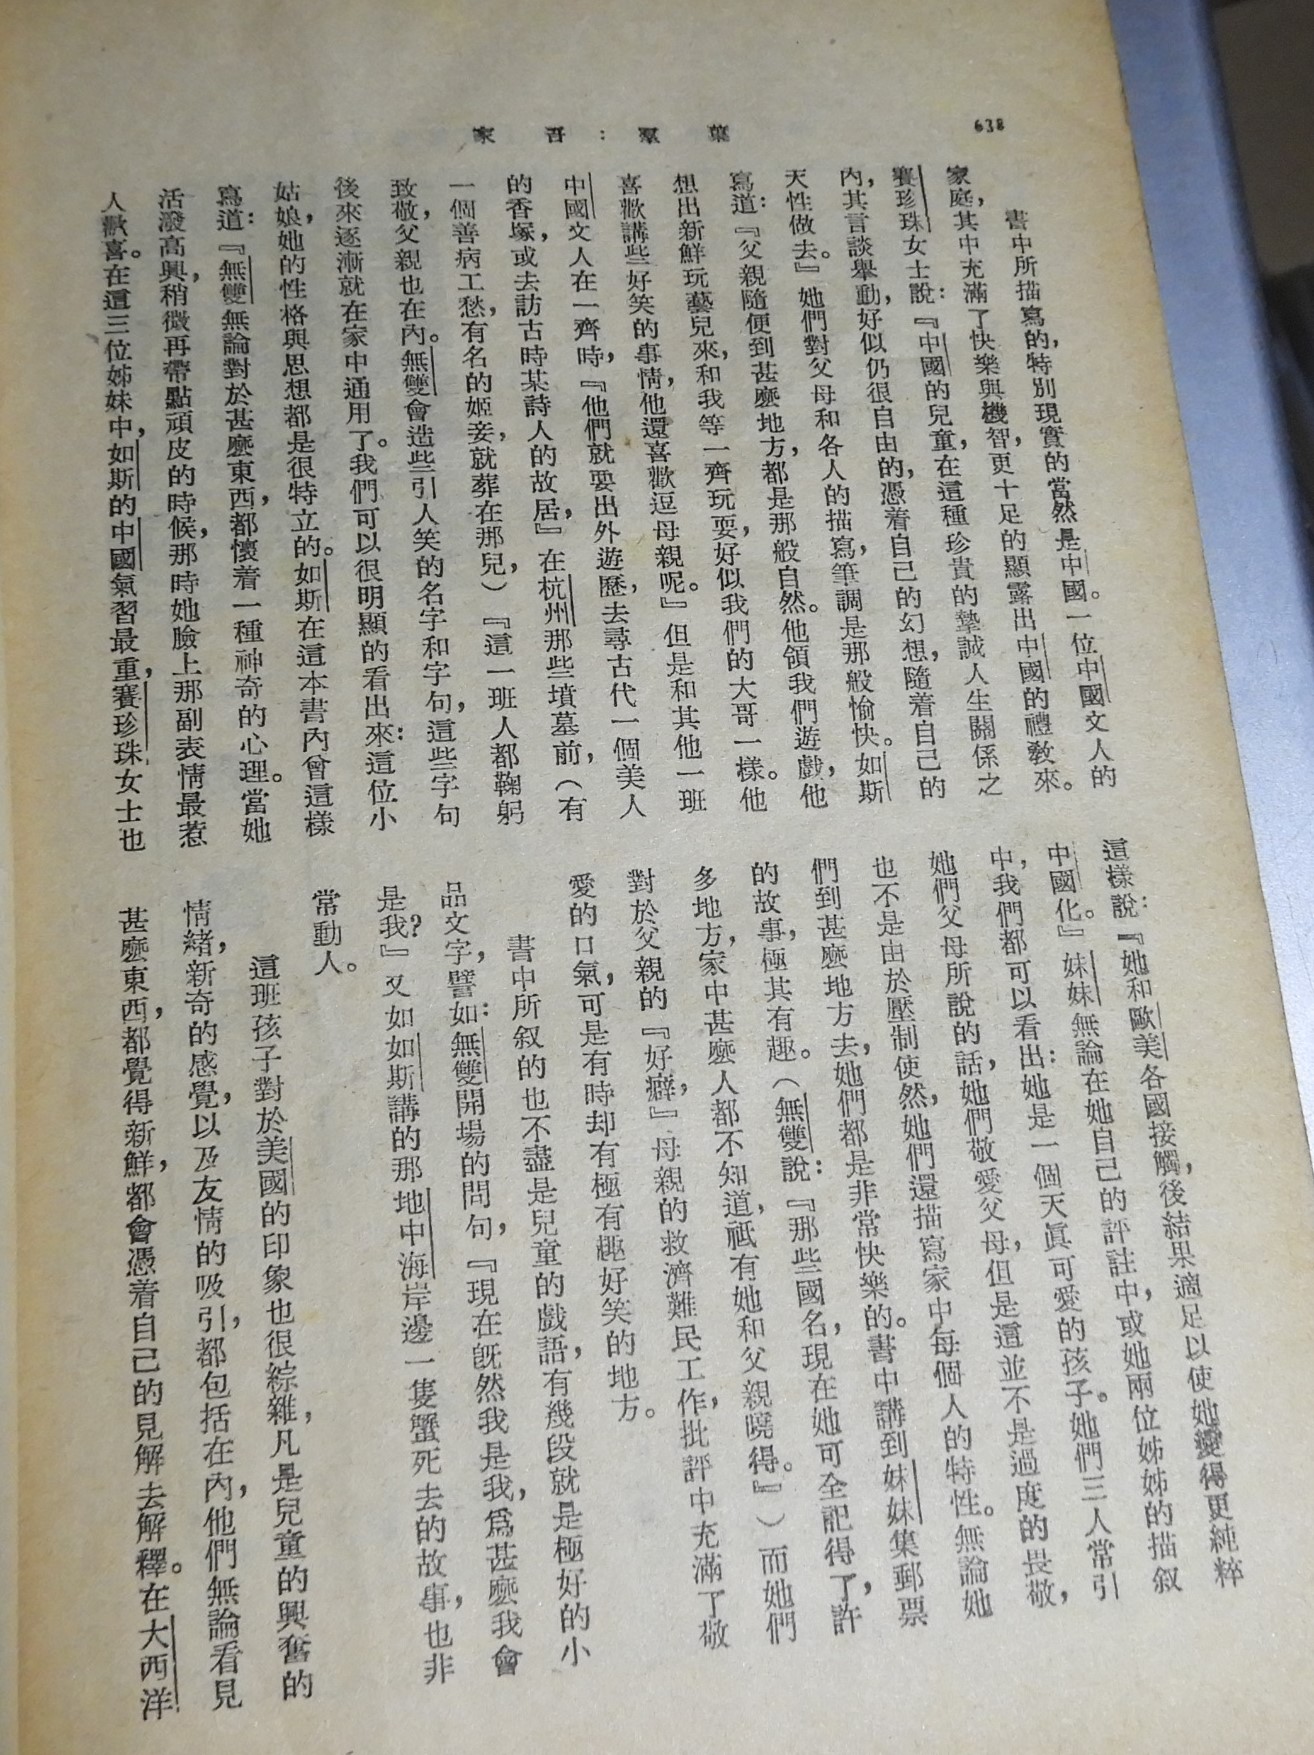 638
葉羣：吾家
書中所描寫的，特別現實的當然是中國。一位中國文人的
家庭，其中充滿了快樂與機智，更十足的顯露出中國的禮敎來。
賽珍珠女士說：『中國的兒童，在這種珍貴的摯誠人生關係之
內，其言談舉動，好似仍很自由的，憑着自己的幻想，隨着自己的
天性做去。』她們對父母和各人的描寫，筆調是那般愉快。如斯
寫道：『父親隨便到甚麼地方，都是那般自然。他領我們遊戲，他
想出新鮮玩藝兒來，和我等一齊玩耍，好似我們的大哥一樣。他
喜歡講些好笑的事情，他還喜歡逗母親呢。』但是和其他一班
中國文人在一齊時，『他們就要出外遊歷，去尋古代一個美人
的香塚，或去訪古時某詩人的故居，』在杭州那些墳墓前，（有
一個善病工愁，有名的姬妾，就葬在那兒，）『這一班人都鞠躬
致敬，父親也在內。無雙會造些引人笑的名字和字句，這些字句
後來逐漸就在家中通用了。我們可以很明顯的看出來：這位小
姑娘，她的性格與思想都是很特立的。如斯在這本書內曾這樣
寫道：『無雙無論對於甚麼東西，都懷着一種神奇的心理。當她
活潑高興，稍微再帶點頑皮的時候，那時她臉上那副表情最惹
人歡喜。在這三位姊妹中，如斯的中國氣習最重，賽珍珠女士也
這樣說：『她和歐美各國接觸，後結果適足以使她變得更純粹
中國化。』妹妹無論在她自己的評註中，或她兩位姊姊的描叙
中，我們都可以看出：她是一個天眞可愛的孩子。她們三人常引
她們父母所說的話，她們敬愛父母，但是這並不是過度的畏敬，
也不是由於壓制使然，她們還描寫家中每個人的特性。無論她
們到甚麼地方去，她們都是非常快樂的。書中講到妹妹集郵票
的故事，極其有趣。（無雙說：『那些國名，現在她可全記得了，許
多地方，家中甚麼人都不知道，祗有她和父親曉得。』）而她們
對於父親的『好癖，』母親的救濟難民工作，批評中充滿了敬
愛的口氣，可是有時却有極有趣好笑的地方。
書中所叙的也不盡是兒童的戲語，有幾段就是極好的小
品文字，譬如：無雙開場的問句，『現在旣然我是我，爲甚麼我會
是我？』又如如斯講的那地中海岸邊一隻蟹死去的故事，也非
常動人。
這班孩子對於美國的印象也很綜雜，凡是兒童的興奮的
情緒，新奇的感覺，以及友情的吸引，都包括在內，他們無論看見
甚麼東西，都覺得新鮮，都會憑着自己的見解去解釋。在大西洋